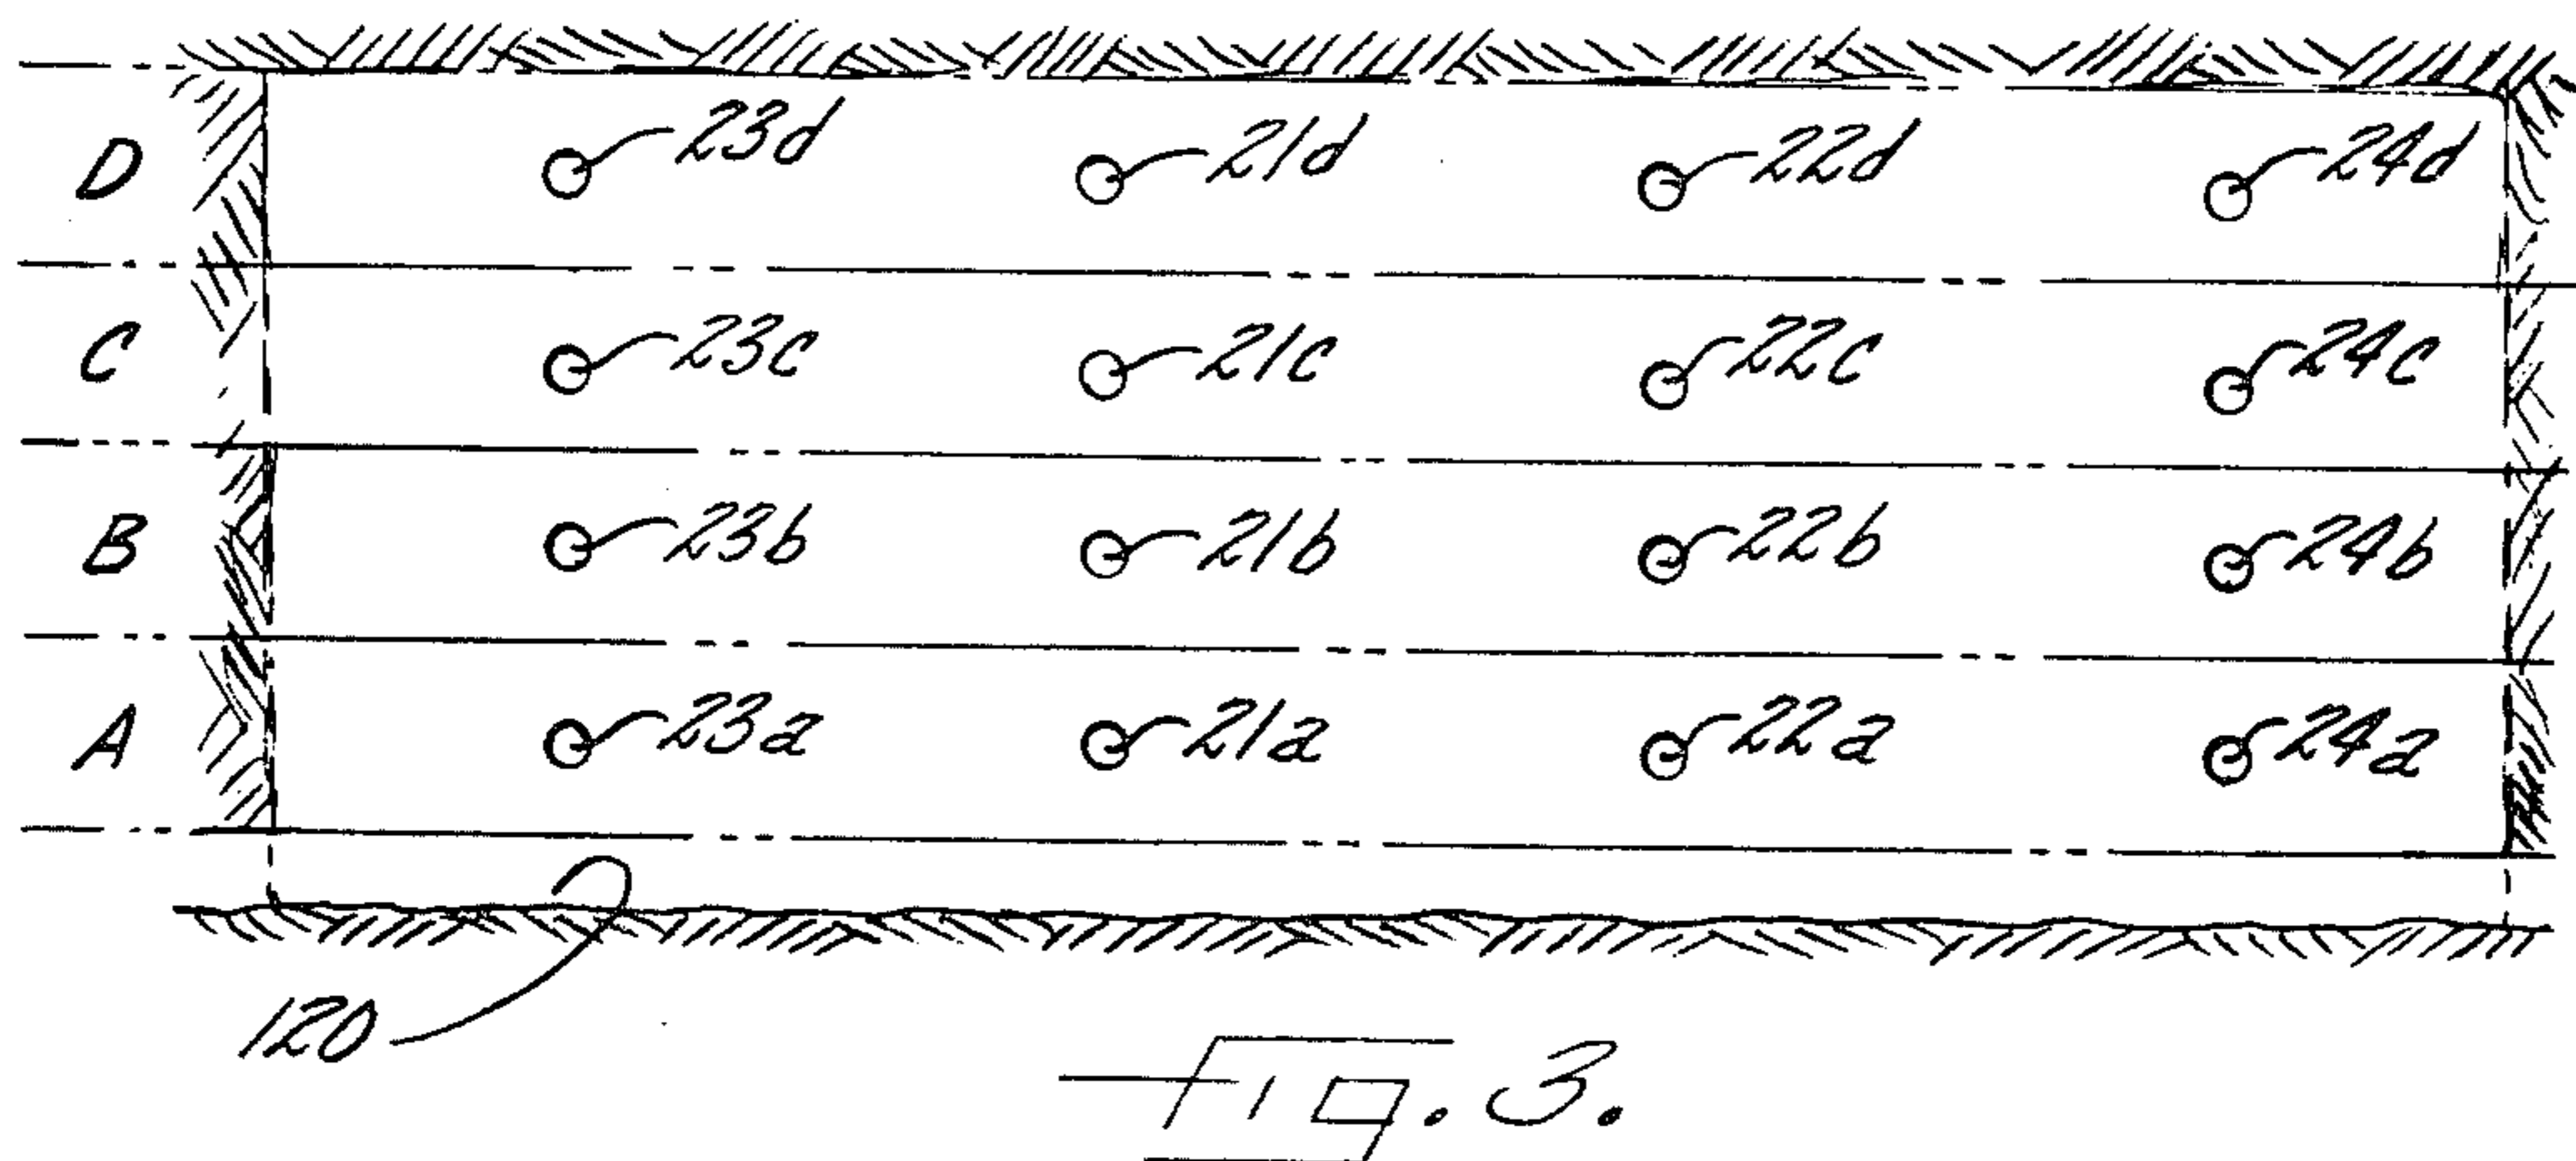 D 23d 21d 22d 24d
C 23c 21c 22c 24c
B 23b 21b 22b 24b
A 23a 21a 22a 24a
120
Fig. 3.